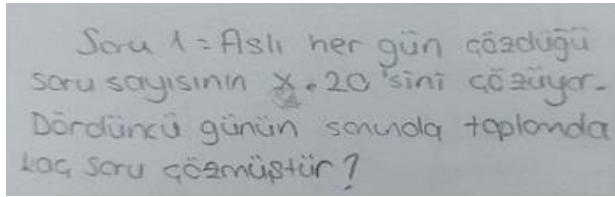 Soru 1 = Aslı her gün çözdüğü
soru sayısının %20'sini çözüyor.
Dördüncü günün sonunda toplamda
kaç soru çözmüştür?